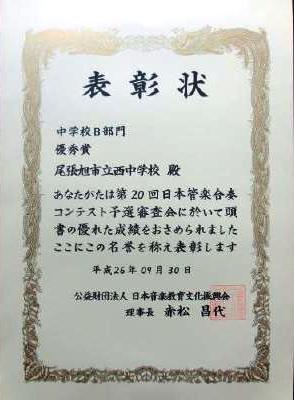 表彰状
中学校B部門
優秀賞
尾張旭市立西中学校 殿
あなたがたは第20回日本管楽合奏
コンテスト予選審査会に於いて頭
書の優れた成績をおさめられました
ここにこの名誉を称え表彰します
平成26年09月30日
公益財団法人 日本音楽教育文化振興会
理事長 赤松 昌代